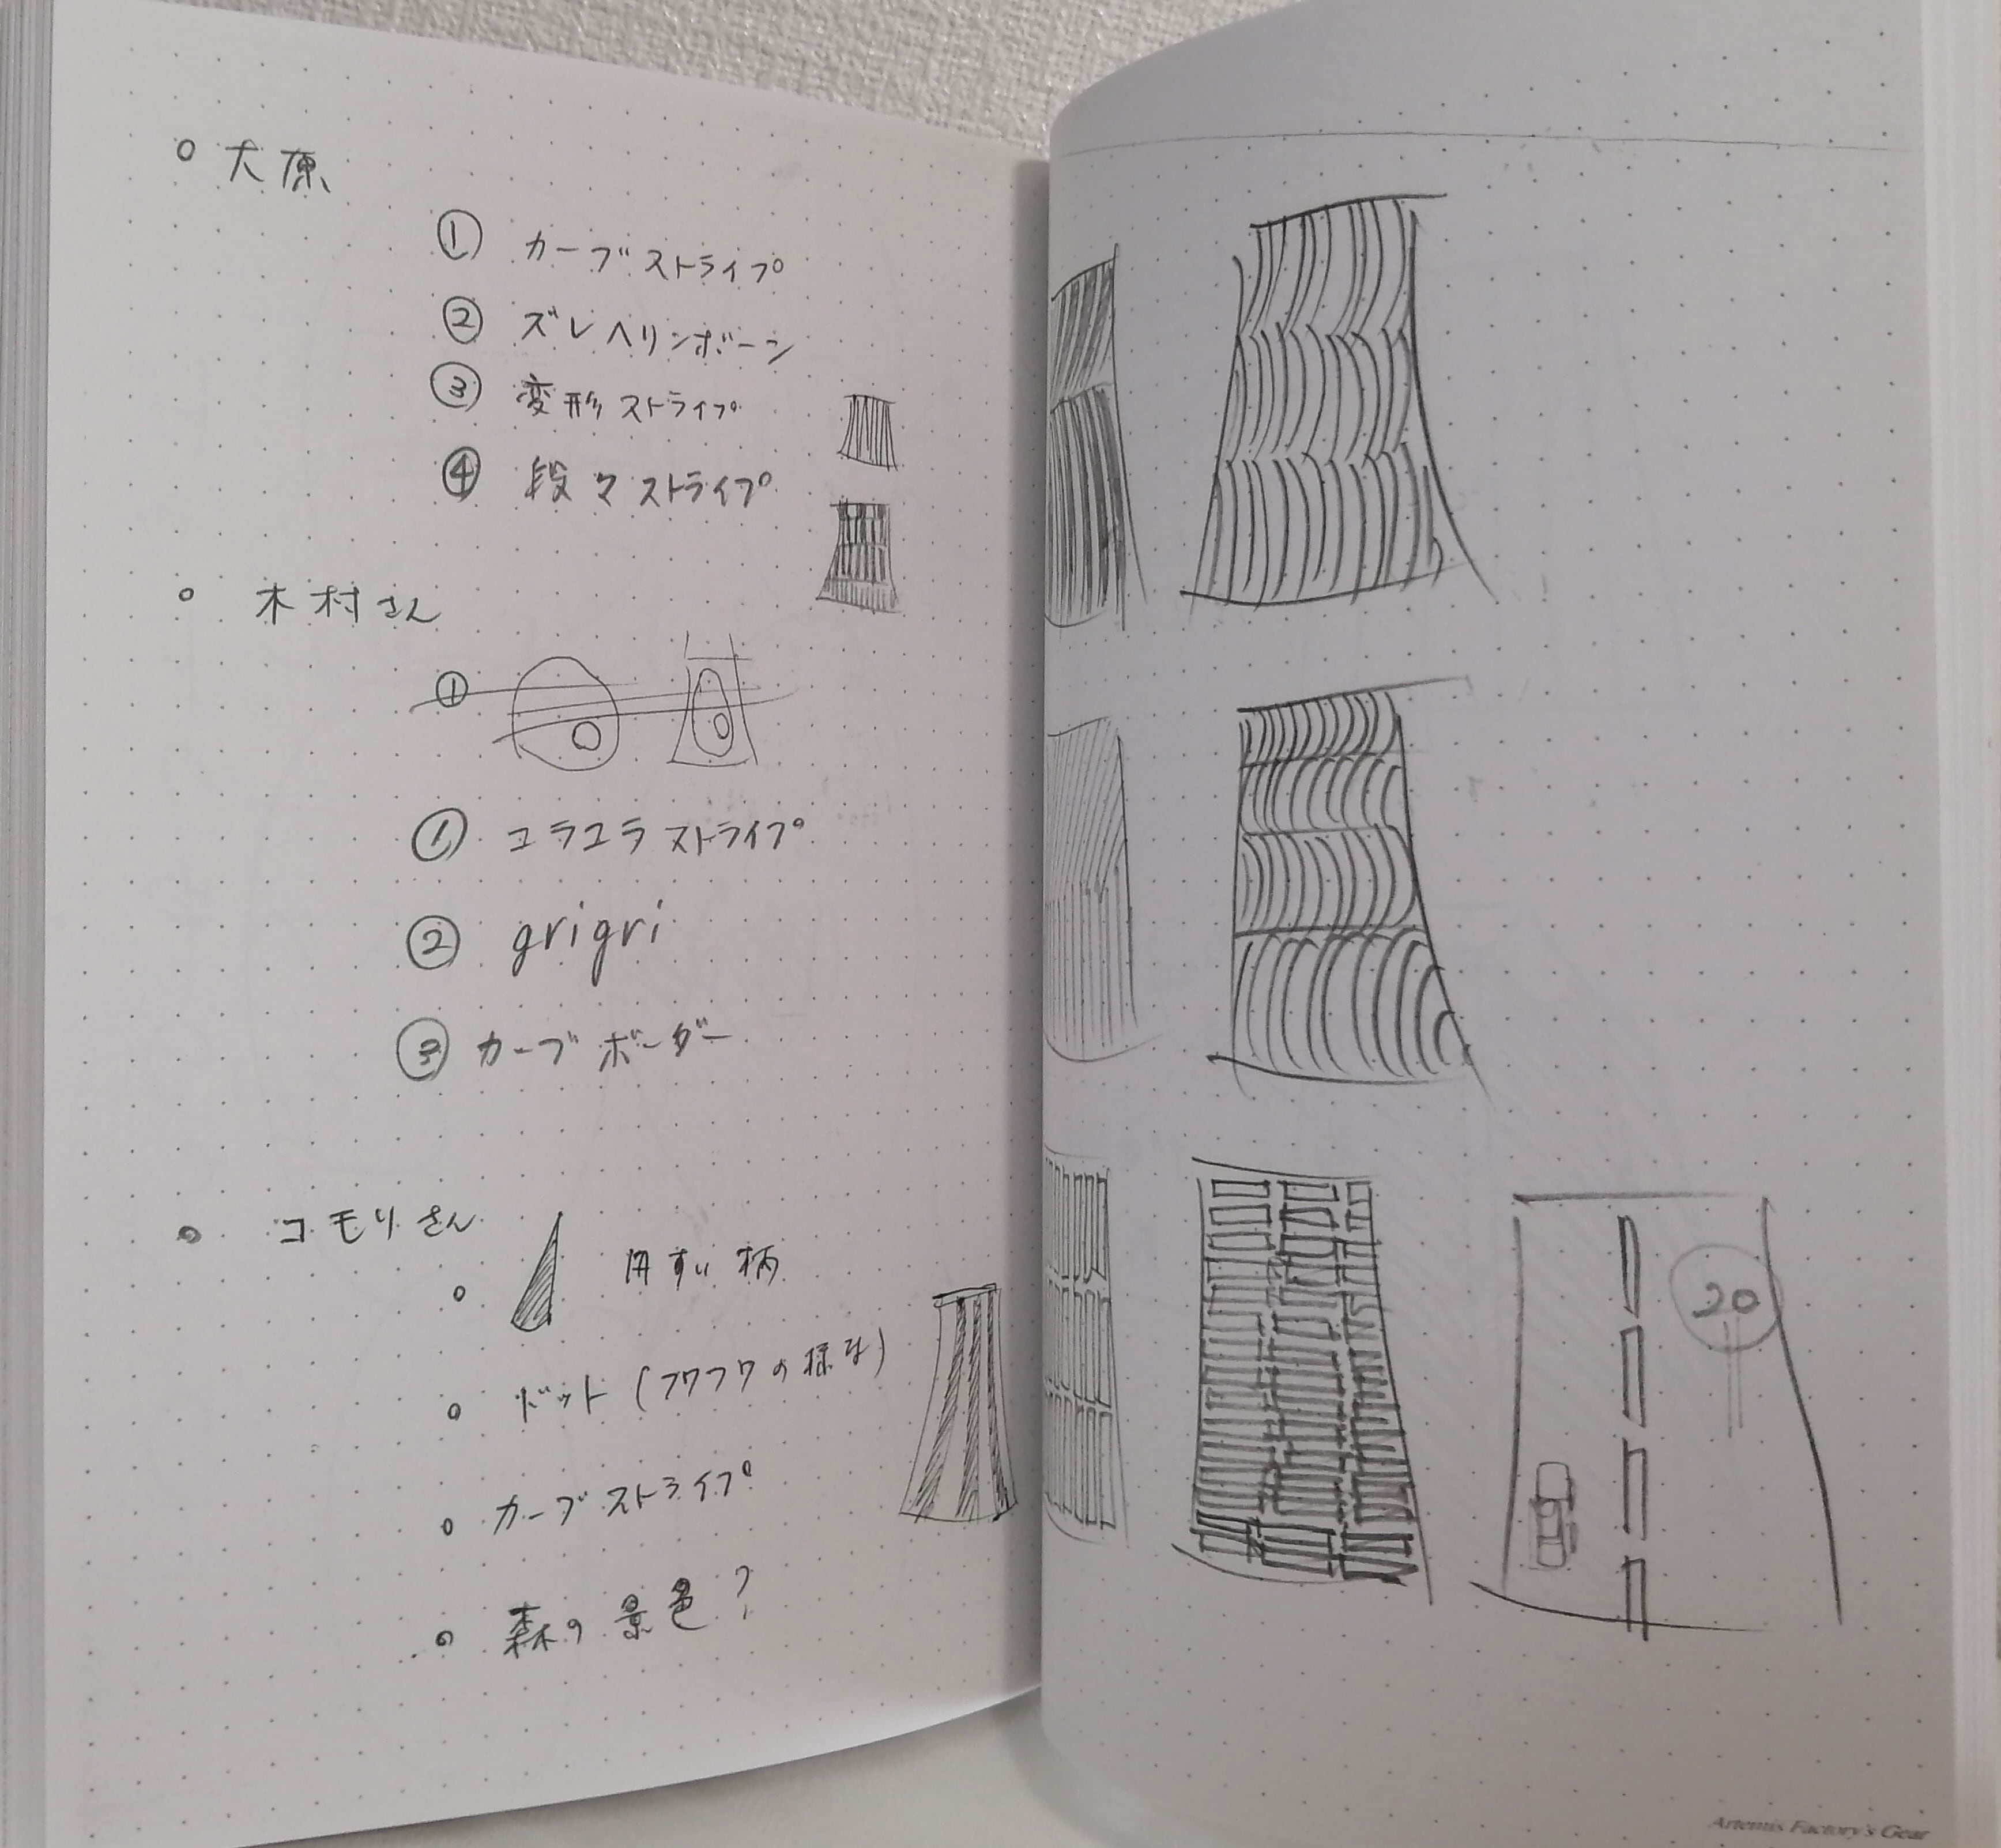 大原
① カーブストライプ
② ズレヘリンボーン
③ 変形ストライプ
④ 段々ストライプ
木村さん
①
① ユラユラストライプ
② grigri
③ カーブボーダー
コモリさん
円すい柄
ドット (フワフワの様な)
カーブストライプ
森の景色?
20
Artemis Factory's Gear